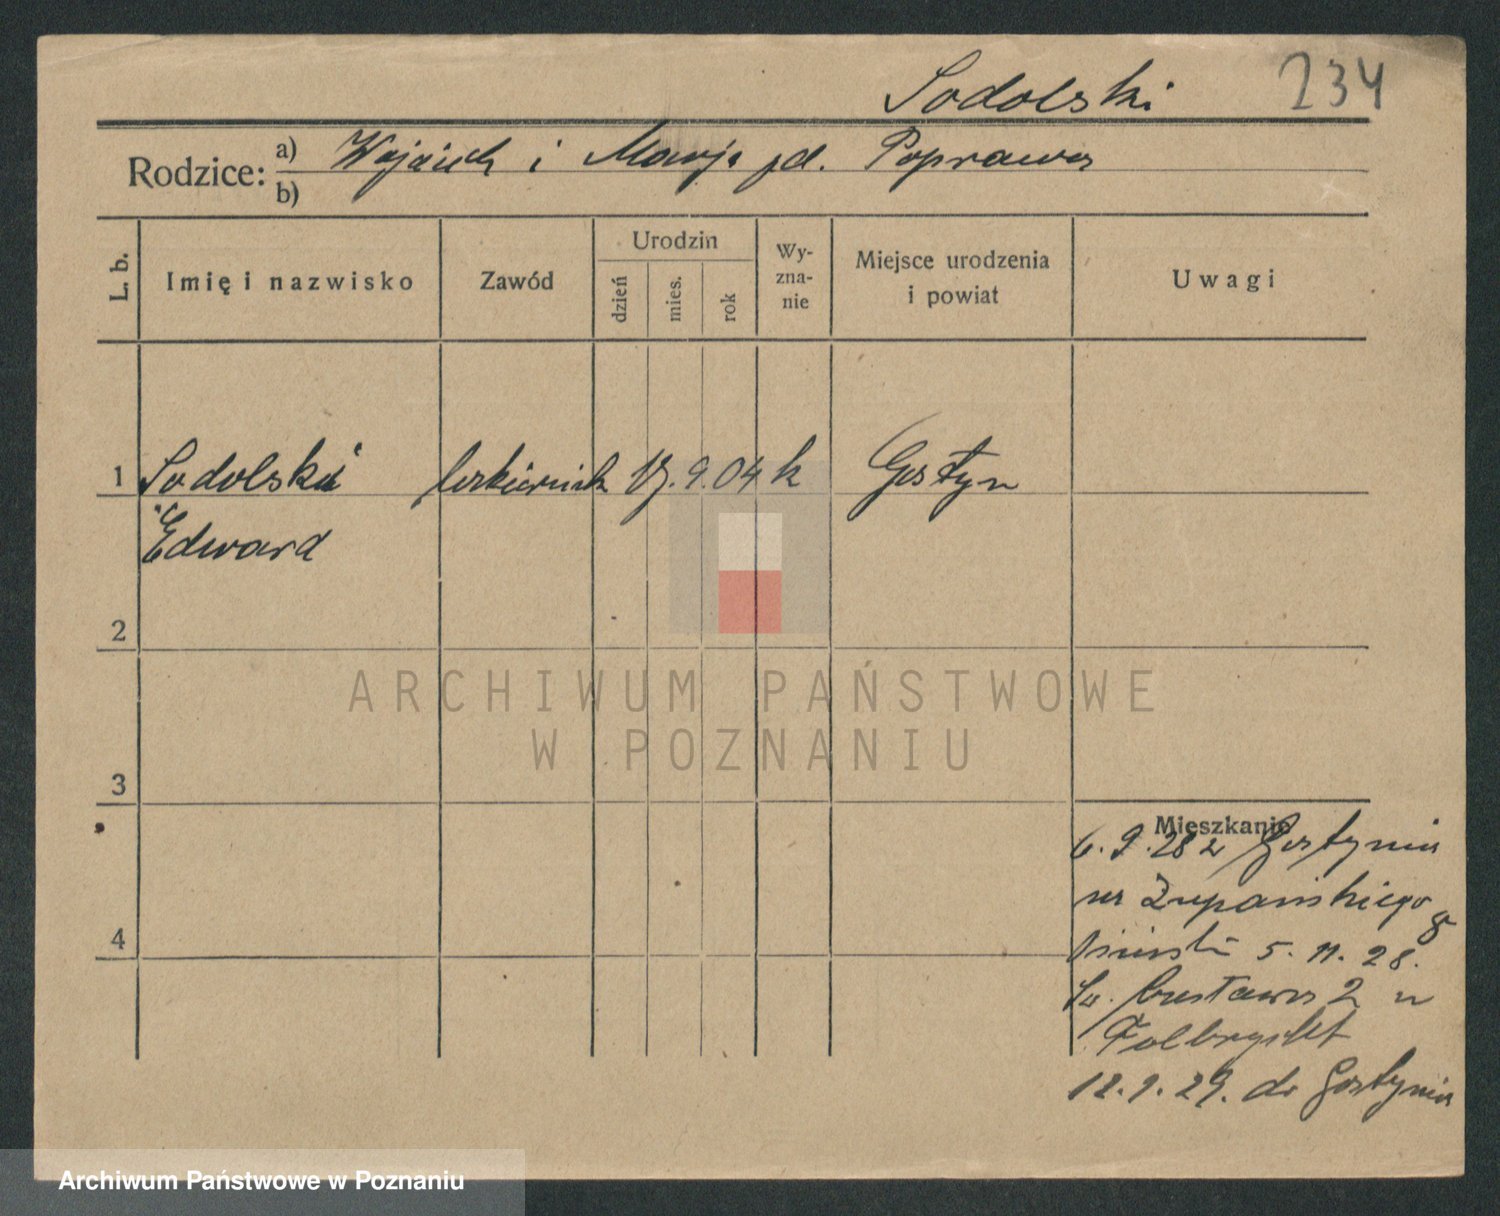 Sodolski 234
Rodzice: a) Wojciech i Marja zd. Poprawa
b)
L. b. Imię i nazwisko Zawód Urodzin dzień mies. rok Wy-zna-nie Miejsce urodzenia i powiat Uwagi
1 Sodolski cukiernik 17. 9. 04 k Gostyn
Edward
2
3
Mieszkanie
6. 9. 28 z Gostynia
na Żupańskiego 8
4
5. 11. 28.
2 u
18. 9. 29. do Gostynia
ARCHIWUM PAŃSTWOWE
W POZNANIU
Archiwum Państwowe w Poznaniu